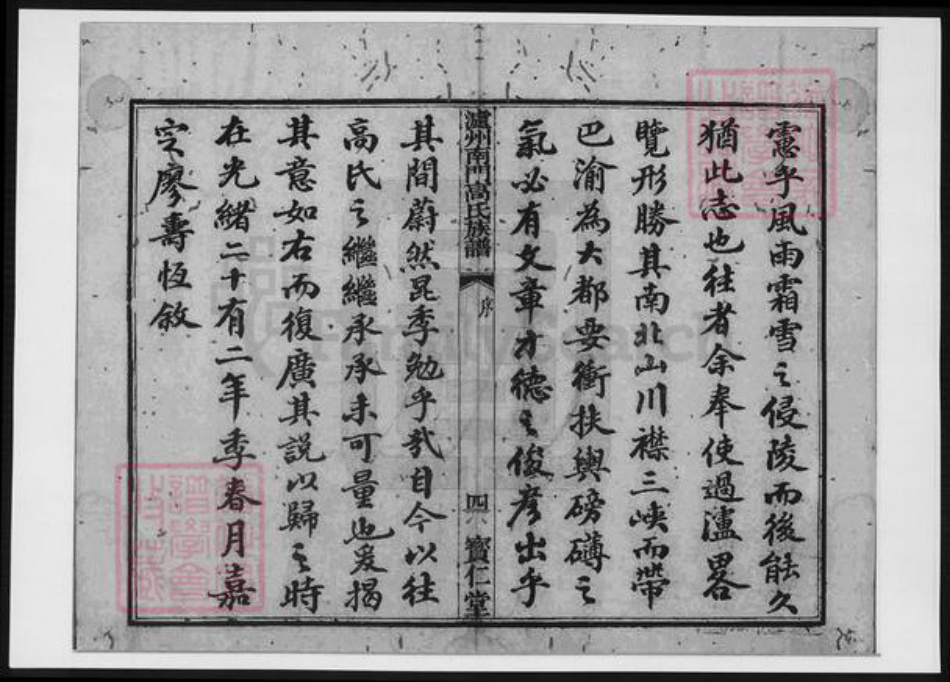 慮乎風雨霜雪之侵陵而後能久
猶此志也往者余奉使過瀘畧
覽形勝其南北山川襟三峽而帶
巴渝為大都要衝扶輿磅礴之
氣必有文章才德之俊彥出乎
瀘州南門高氏族譜 序 四 寶仁堂
其間蔚然昆季勉乎哉自今以往
高氏之繼繼承承未可量也爰揭
其意如右而復廣其說以歸之時
在光緒二十有二年季春月嘉
定廖壽恆敘
FamilySearch